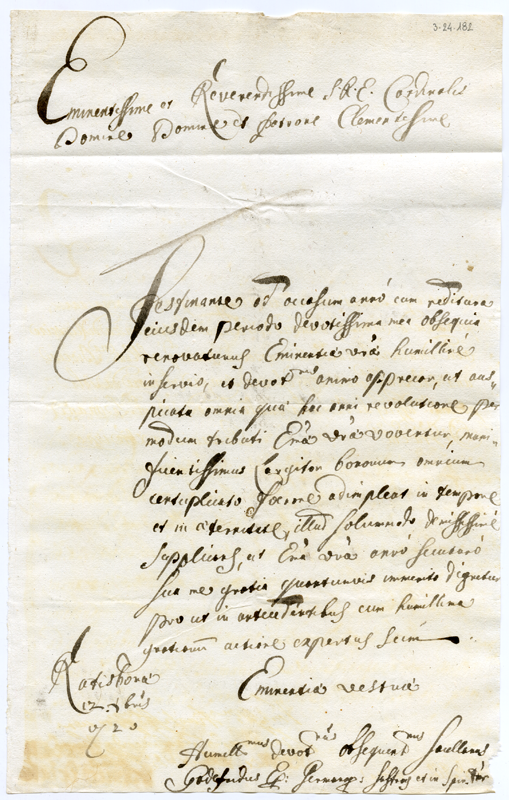 3-24-182
Eminentissime et Reverendissime S.R.E. Cardinalis
Domine Domine et Patrone Clementissime
Festinante ad occasum anno cum reditura
eiusdem periodo devotissima mea obsequia
renovaturus Eminentiæ vræ humillimè
inservio, et devotmo animo apprecor, ut aus-
picata omnia quæ hac anni revolutione per
modum tributi Emæ vræ voventur, muni-
ficentissimus Largitor bonorum omnium
centuplicato fœnore adimpleat in tempore
et in æternitate, illud solummodo demississimè
supplicans, ut Ema vra anno secuturo
sua me gratia quantumvis immerito dignetur
pro ut in antecedentibus cum humillima
gratiarum actione expertus sum
Eminentiæ vestræ
Ratisbonæ
12 xbris
1720
Humillmus devotmus obsequentmus Sacellanus
Godefridus Ep: